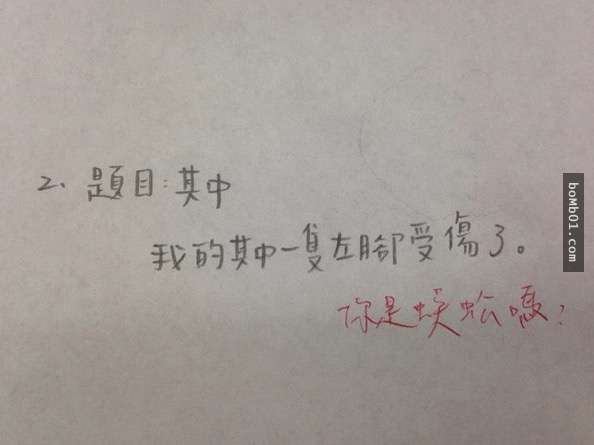 2、題目：其中
我的其中一隻左腳受傷了。
你是蜈蚣嗎？
boMb01.com